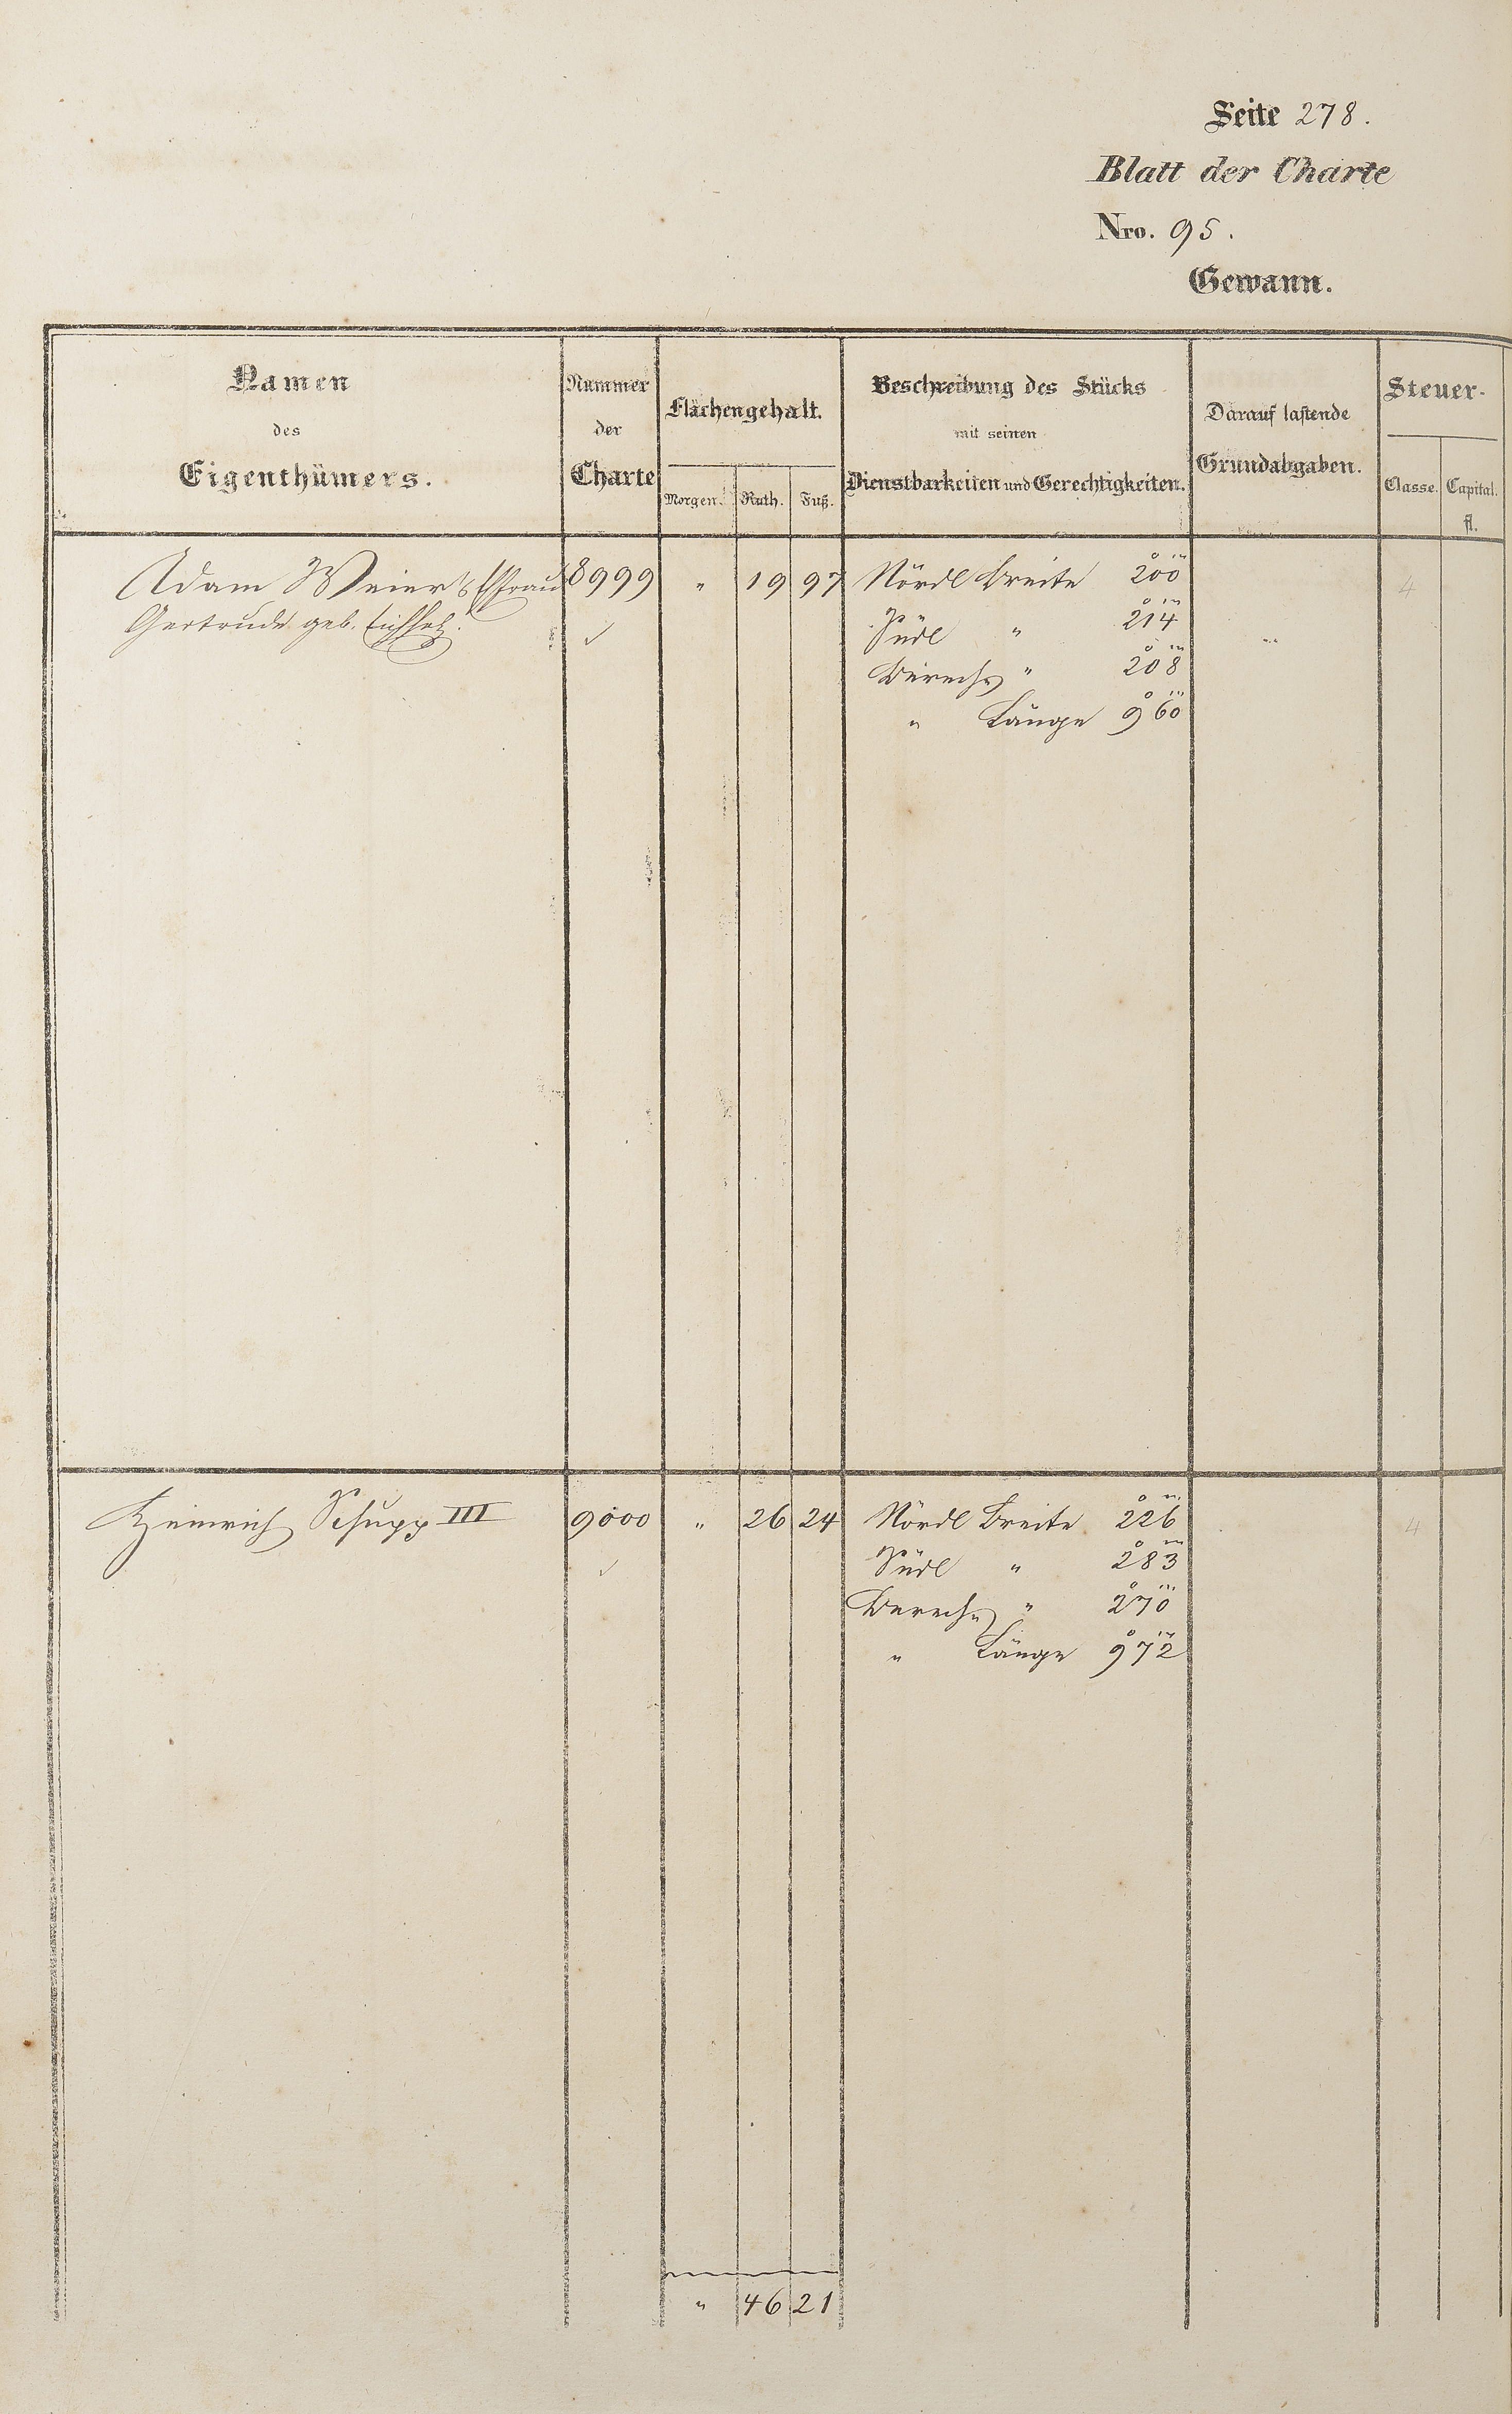 Seite 278.
Blatt der Charte
Nro. 95.
Gewann.
Namen des Eigenthümers.
Nummer der Charte
Flächengehalt.
Morgen. Ruth. Fuß.
Beschreibung des Stücks mit seinen Dienstbarkeiten und Gerechtigkeiten.
Darauf lastende Grundabgaben.
Steuer-
Classe. Capital.
fl.
Adam Weier's Ehfrau 8999 " 19 97 Nördl Breite 200 4
Gertrude geb. Eichholz. ✓ Südl " 214
Berechn " 208
" Länge 960
Heinrich Schupp III 9000 " 26 24 Nördl Breite 226 4
✓ Südl " 283
Berechn " 270
" Länge 972
" 46 21